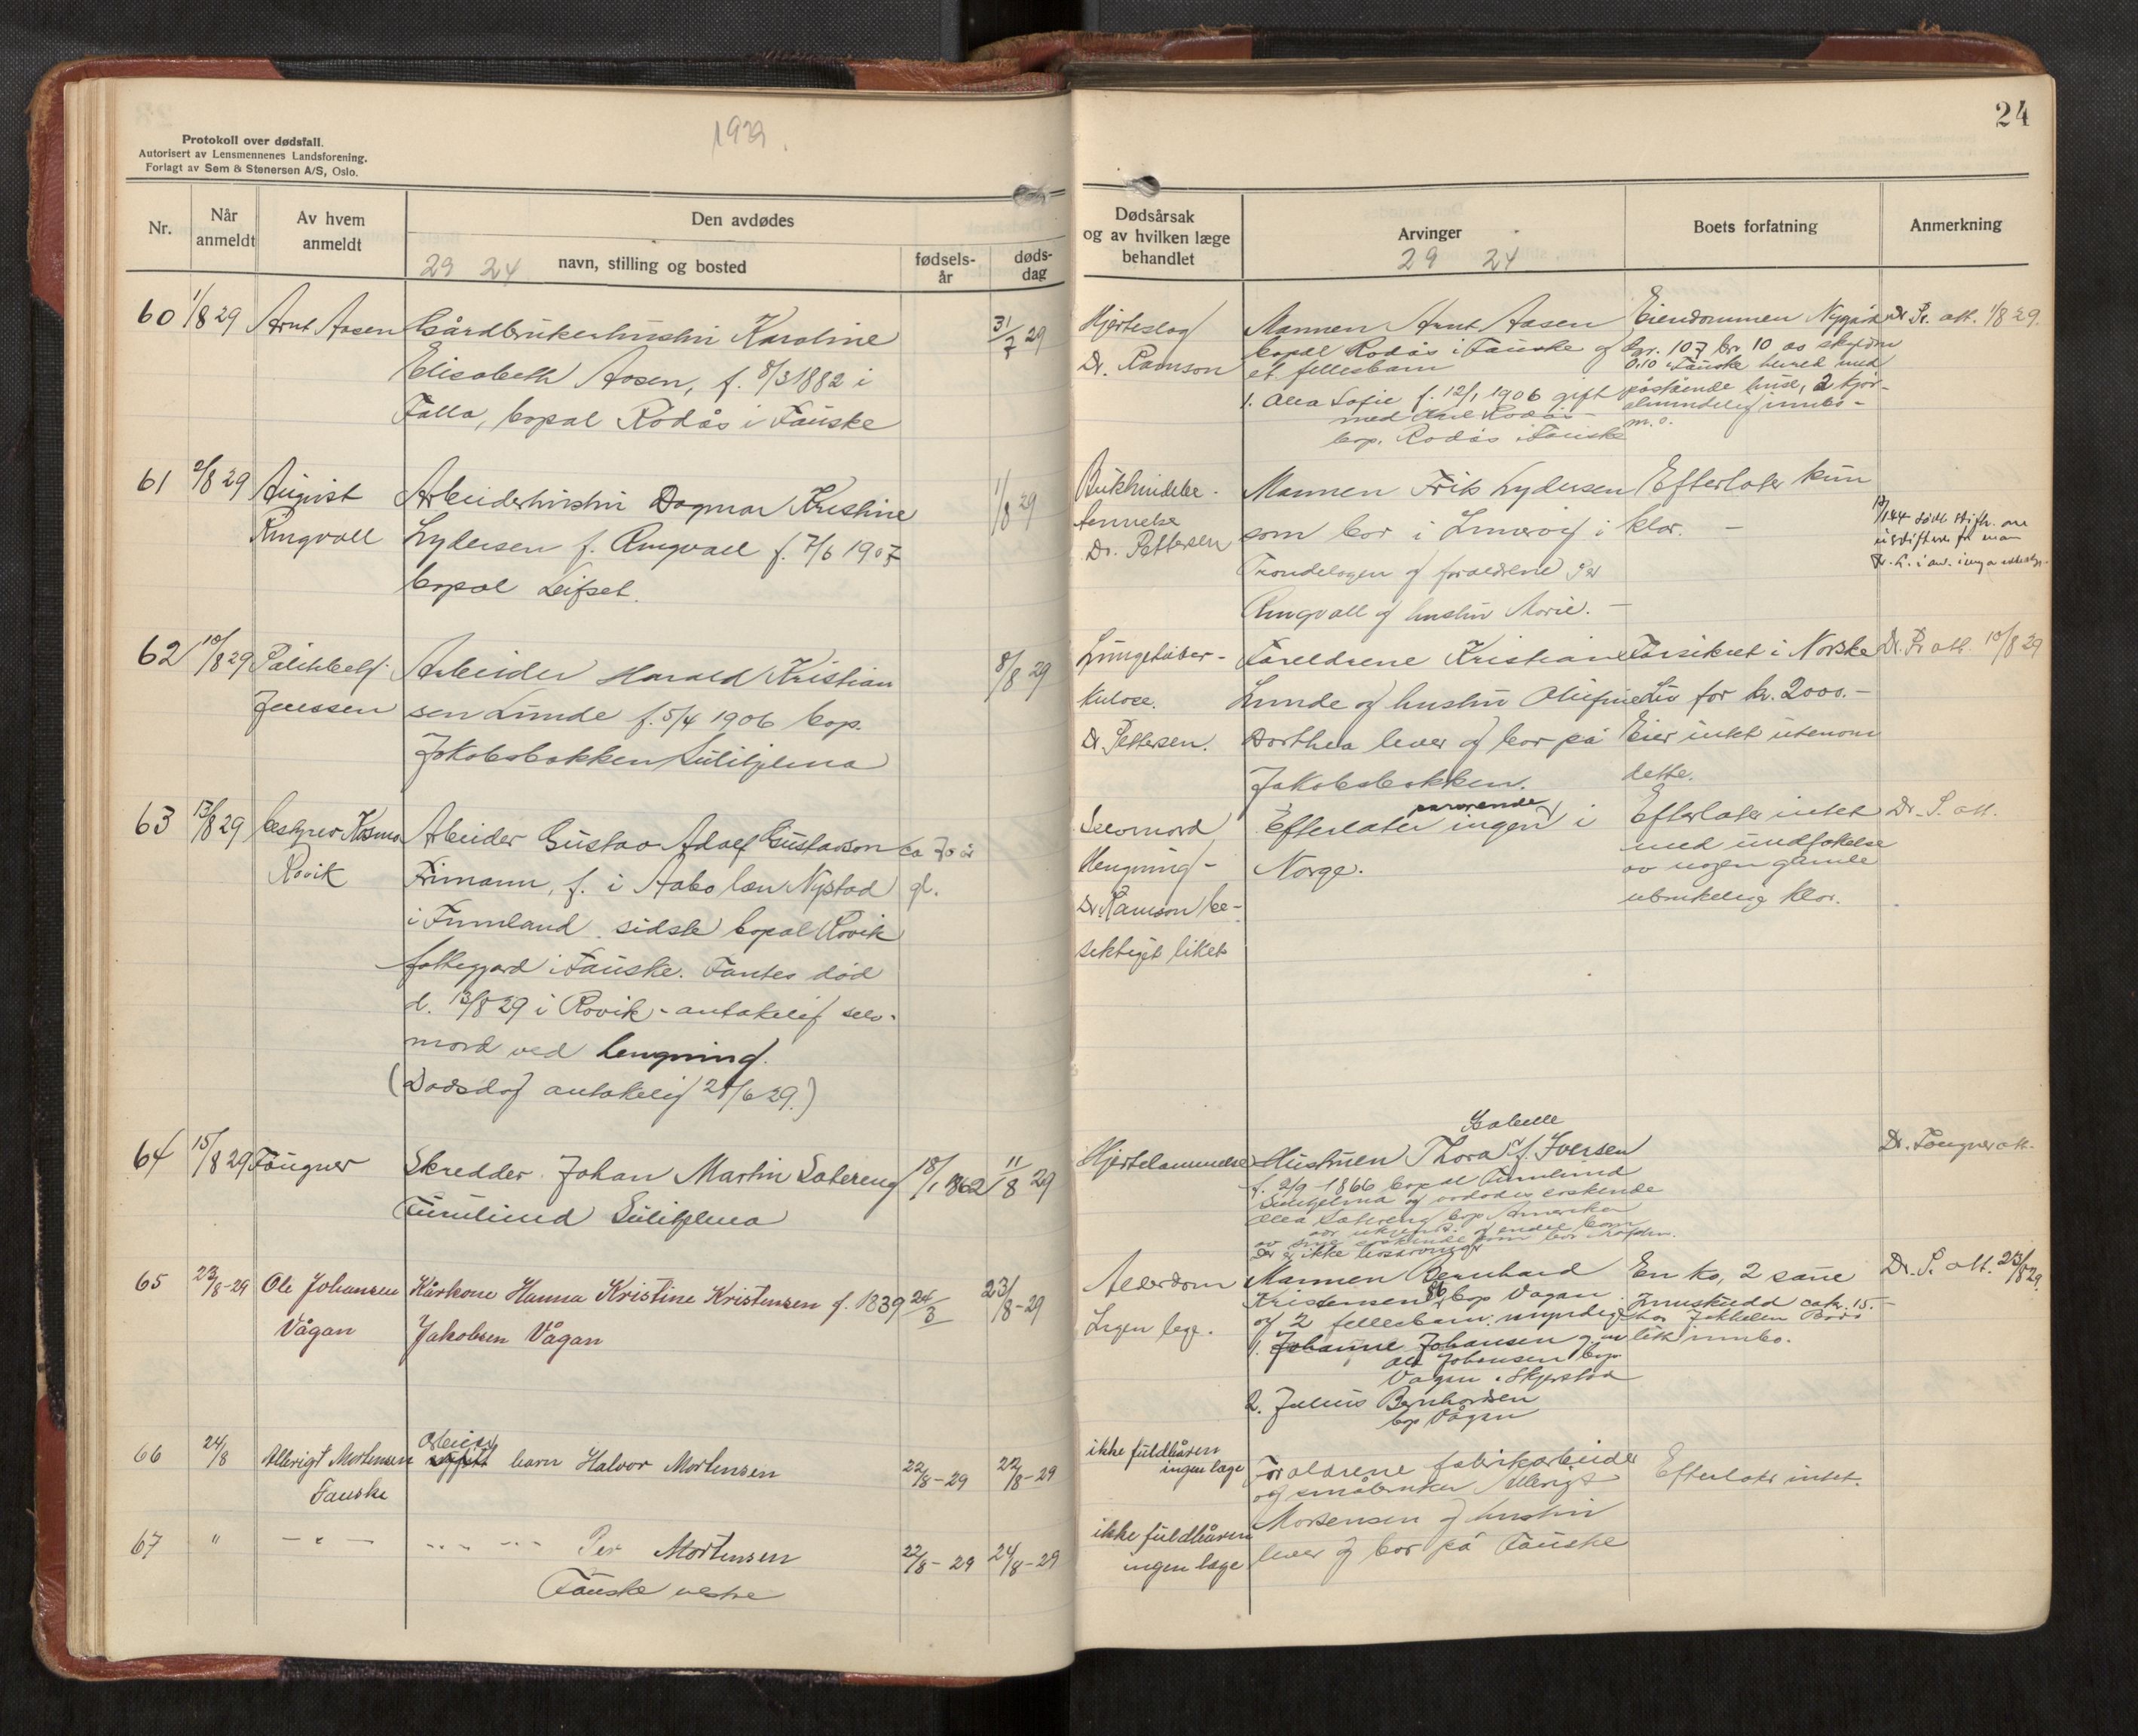 1929.
24
Protokoll over dødsfall.
Autorisert av Lensmennenes Landsforening.
Forlagt av Sem & Stenersen A/S, Oslo.
Nr.
Når anmeldt
Av hvem anmeldt
Den avdødes
29 24 navn, stilling og bosted
fødsels-år
døds-dag
Dødsårsak
og av hvilken læge
behandlet
Arvinger
29 24
Boets forfatning
Anmerkning
60 1/8 29 Arnt Aasen Gårdbrukerhustru Karoline 31/7 29
Elisabeth Aasen, f. 8/3 1882 i
Falla, bopæl Rødås i Fauske
Hjerteslag
Dr. Ramson
Mannen Arnt Aasen
bopæl Rødås i Fauske og
et fellesbarn
1. Alea Sofie f. 12/1 1906 gift
med Karl Rødås
bop. Rødås i Fauske
Eiendommen Nygård
gnr. 107 br 10 av skyldm
0.10 i Fauske herred med
påstående huse, 2 kjør-
almindelig innbo-
m.v.
Dr. Pr. att. 1/8 29.
61 2/8 29 August
Ringvall
Arbeiderhustru Dagmar Kristine 1/8 29
Lydersen f. Ringvall f. 7/6 1907
bopæl Leifset.
Bukhindebe-
tennelse
Dr. Pettersen
Mannen Frits Lydersen
som bor i Innervig i
Trøndelagen og forældrene Per
Ringvall og hustru Marie. -
Efterlater kun
klær. -
62 10/8 29 Politibetj.
Jenssen
Arbeider Harald Kristian 8/8 29
sen Lunde f. 5/4 1906 bop.
Jakobsbakken Sulitjelma
Lungetuber-
kulose.
Dr. Pettersen.
Foreldrene Kristian
Lunde og hustru Olufine
Dorthea lever og bor på
Jakobsbakken.
Forsikret i Norske
Liv for kr. 2000.-
Eier intet utenom
dette.
Dr. P. att. 10/8 29
63 13/8 29 bestyrer Kosmo
Røvik
Arbeider Gustav Adolf Gustavson ca 70 år
Frimann, f. i Aabo len Nystad gl.
i Finnland. sidste bopæl Røvik
folkegård i Fauske. Fantes død
d. 13/8 29 i Røvik - antakelig selv-
mord ved hengning.
(Dødsdag antakelig 28/6 29.)
Selvmord
Hengning -
Dr. Ramson be-
siktiget liket
Efterlater ingen pårørende i
Norge.
Efterlater intet
med undtakelse
av nogen gamle
ubrukelig klær.
Dr. P. att.
64 15/8 29 Fougner
Skredder Johan Martin Sætereng 18/1 1862 11/8 29
Furulund Sulitjelma
Hjertelammelse
Isabelle
Hustruen Thora f. Iversen
f. 2/9 1866 bopæl Furulund
Sulitjelma og avdødes søskende
Alea Sætereng bop Amerika
Der er ikke livsarvinger
Dr. Fougner att.
65 23/8-29 Ole Johansen
Vågan
Kårkone Hanna Kristine Kristensen f. 1839 24/3 23/8-29
Jakobsen Vågan
Alderdom
Ingen lege.
Mannen Bernhard
Kristensen bop Vågan
og 2 fellesbarn: myndige
1. Johanne Johansen g. m
Ole Johansen bop.
Vågan i Skjerstad
2. Julius Bernhardsen
bop Vågan
En ko, 2 saue
Innskudd ca kr. 15.-
hos Jakhelln Bodø
litt innbo.
Dr. P. att. 23/8 29.
66 24/8 Albrigt Mortensen
Fauske
Arbeider barn Halvor Mortensen 22/8-29 22/8-29
ikke fuldbåren
ingen læge
Forældrene fabrikarbeider
og småbruker Albrigt
Mortensen og hustru
lever og bor på Fauske
Efterlater intet.
67 " - " - Per Mortensen 22/8-29 24/8-29
Fauske vestre
ikke fuldbåren
ingen læge